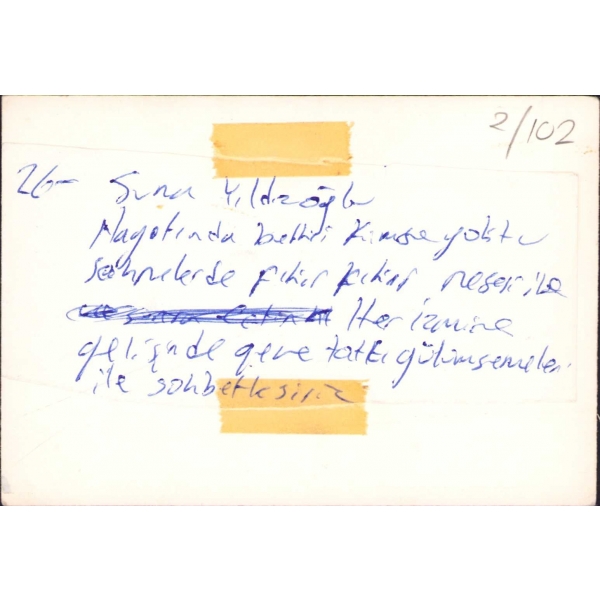 2/102
26- Suna Yıldızoğlu
Hayatında belkiri kimse yoktu
sahnelerde fıkır fıkır neşesi ile
Her İzmire
gelişinde gene tatlı gülümsemeleri
ile sohbetlesiriz